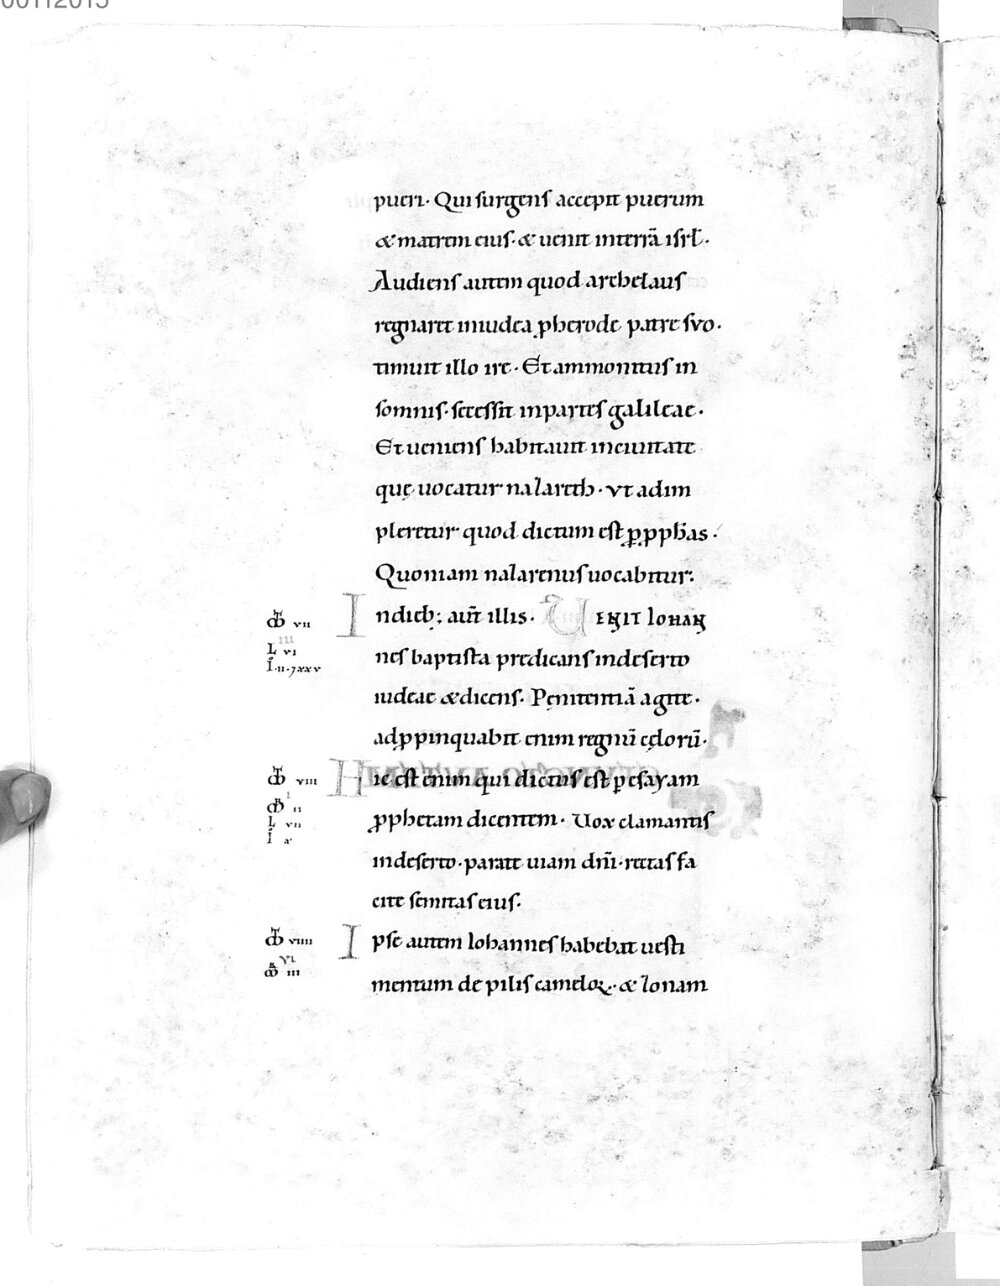 00112015
pueri. Qui surgens accepit puerum
& matrem eius. & uenit interrā isrł.
Audiens autem quod archelaus
regnaret iniudea ꝓherode patre suo.
timuit illo ire. Et ammonitus in
somnis. secessit inpartes galileae.
Et ueniens habitauit inciuitate
quę uocatur nazareth. ut adim
pleretur quod dictum est ꝑ ꝓphas.
Quoniam nazarenus uocabitur.
vii Indieb; aut̄ illis. UENIT Iohan
L vi nes baptista predicans indeserto
I. ii. xxv iudeae & dicens. Pęnitentiā agite.
adꝓpinquabit enim regnū cęlorū.
viii Hic est enim qui dictus est ꝑ esayam
ii
L vii ꝓphetam dicentem. Uox clamantis
I x indeserto. parate uiam dn̄i. rectas fa
cite semitas eius.
viiii Ipse autem Iohannes habebat uesti
vi
iii mentum de pilis cameloꝝ. & zonam